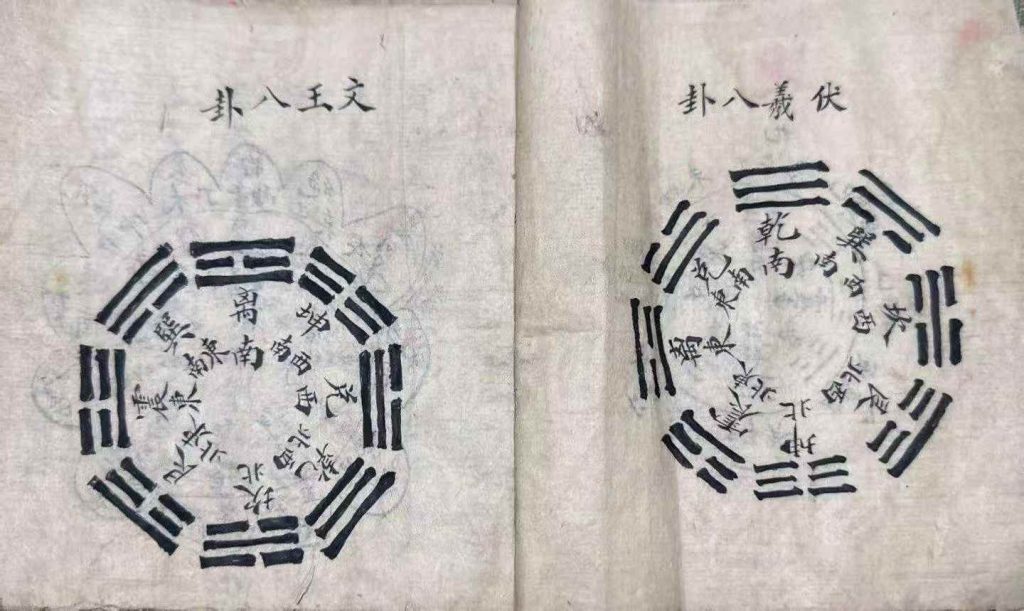 伏羲八卦
乾南
巽
坎西
艮西北
坤北
東北
離東
兌東南
文王八卦
离南
坤西南
兌西
乾西北
坎北
艮東北
震東
巽東南